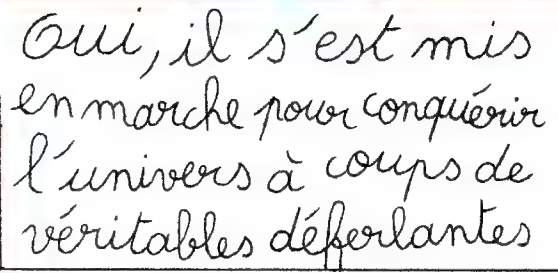 Oui, il s'est mis
en marche pour conquérir
l'univers à coups de
véritables déferlantes